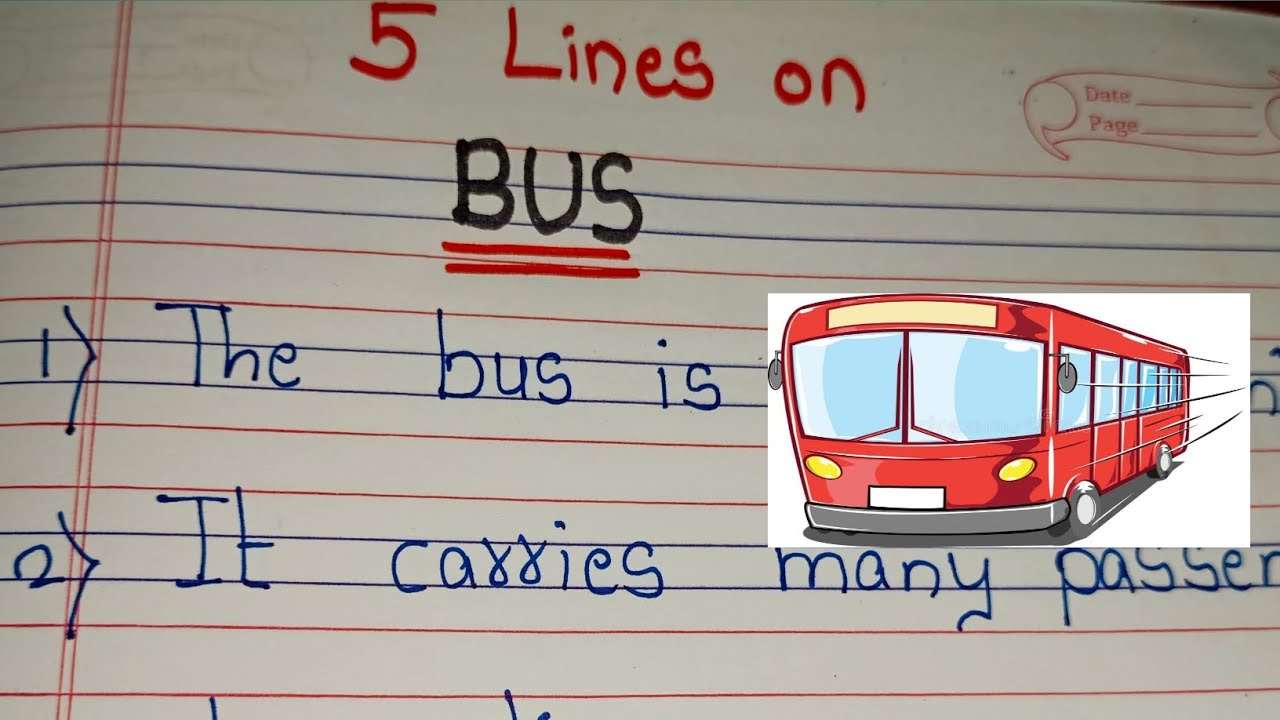 5 Lines on
Date
Page
BUS
1) The bus is
2) It carries many passen